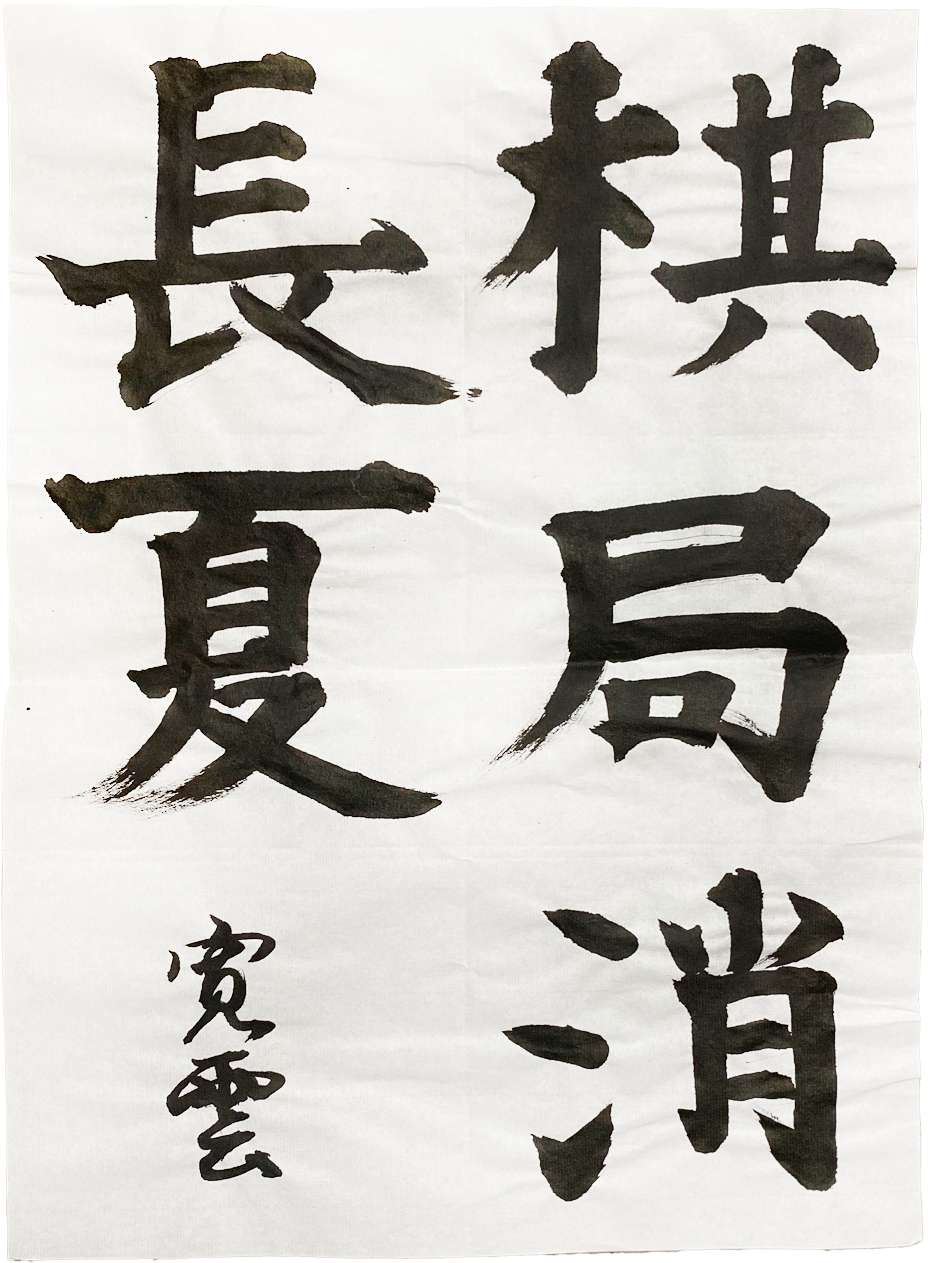 棋局消
長夏
寛雲